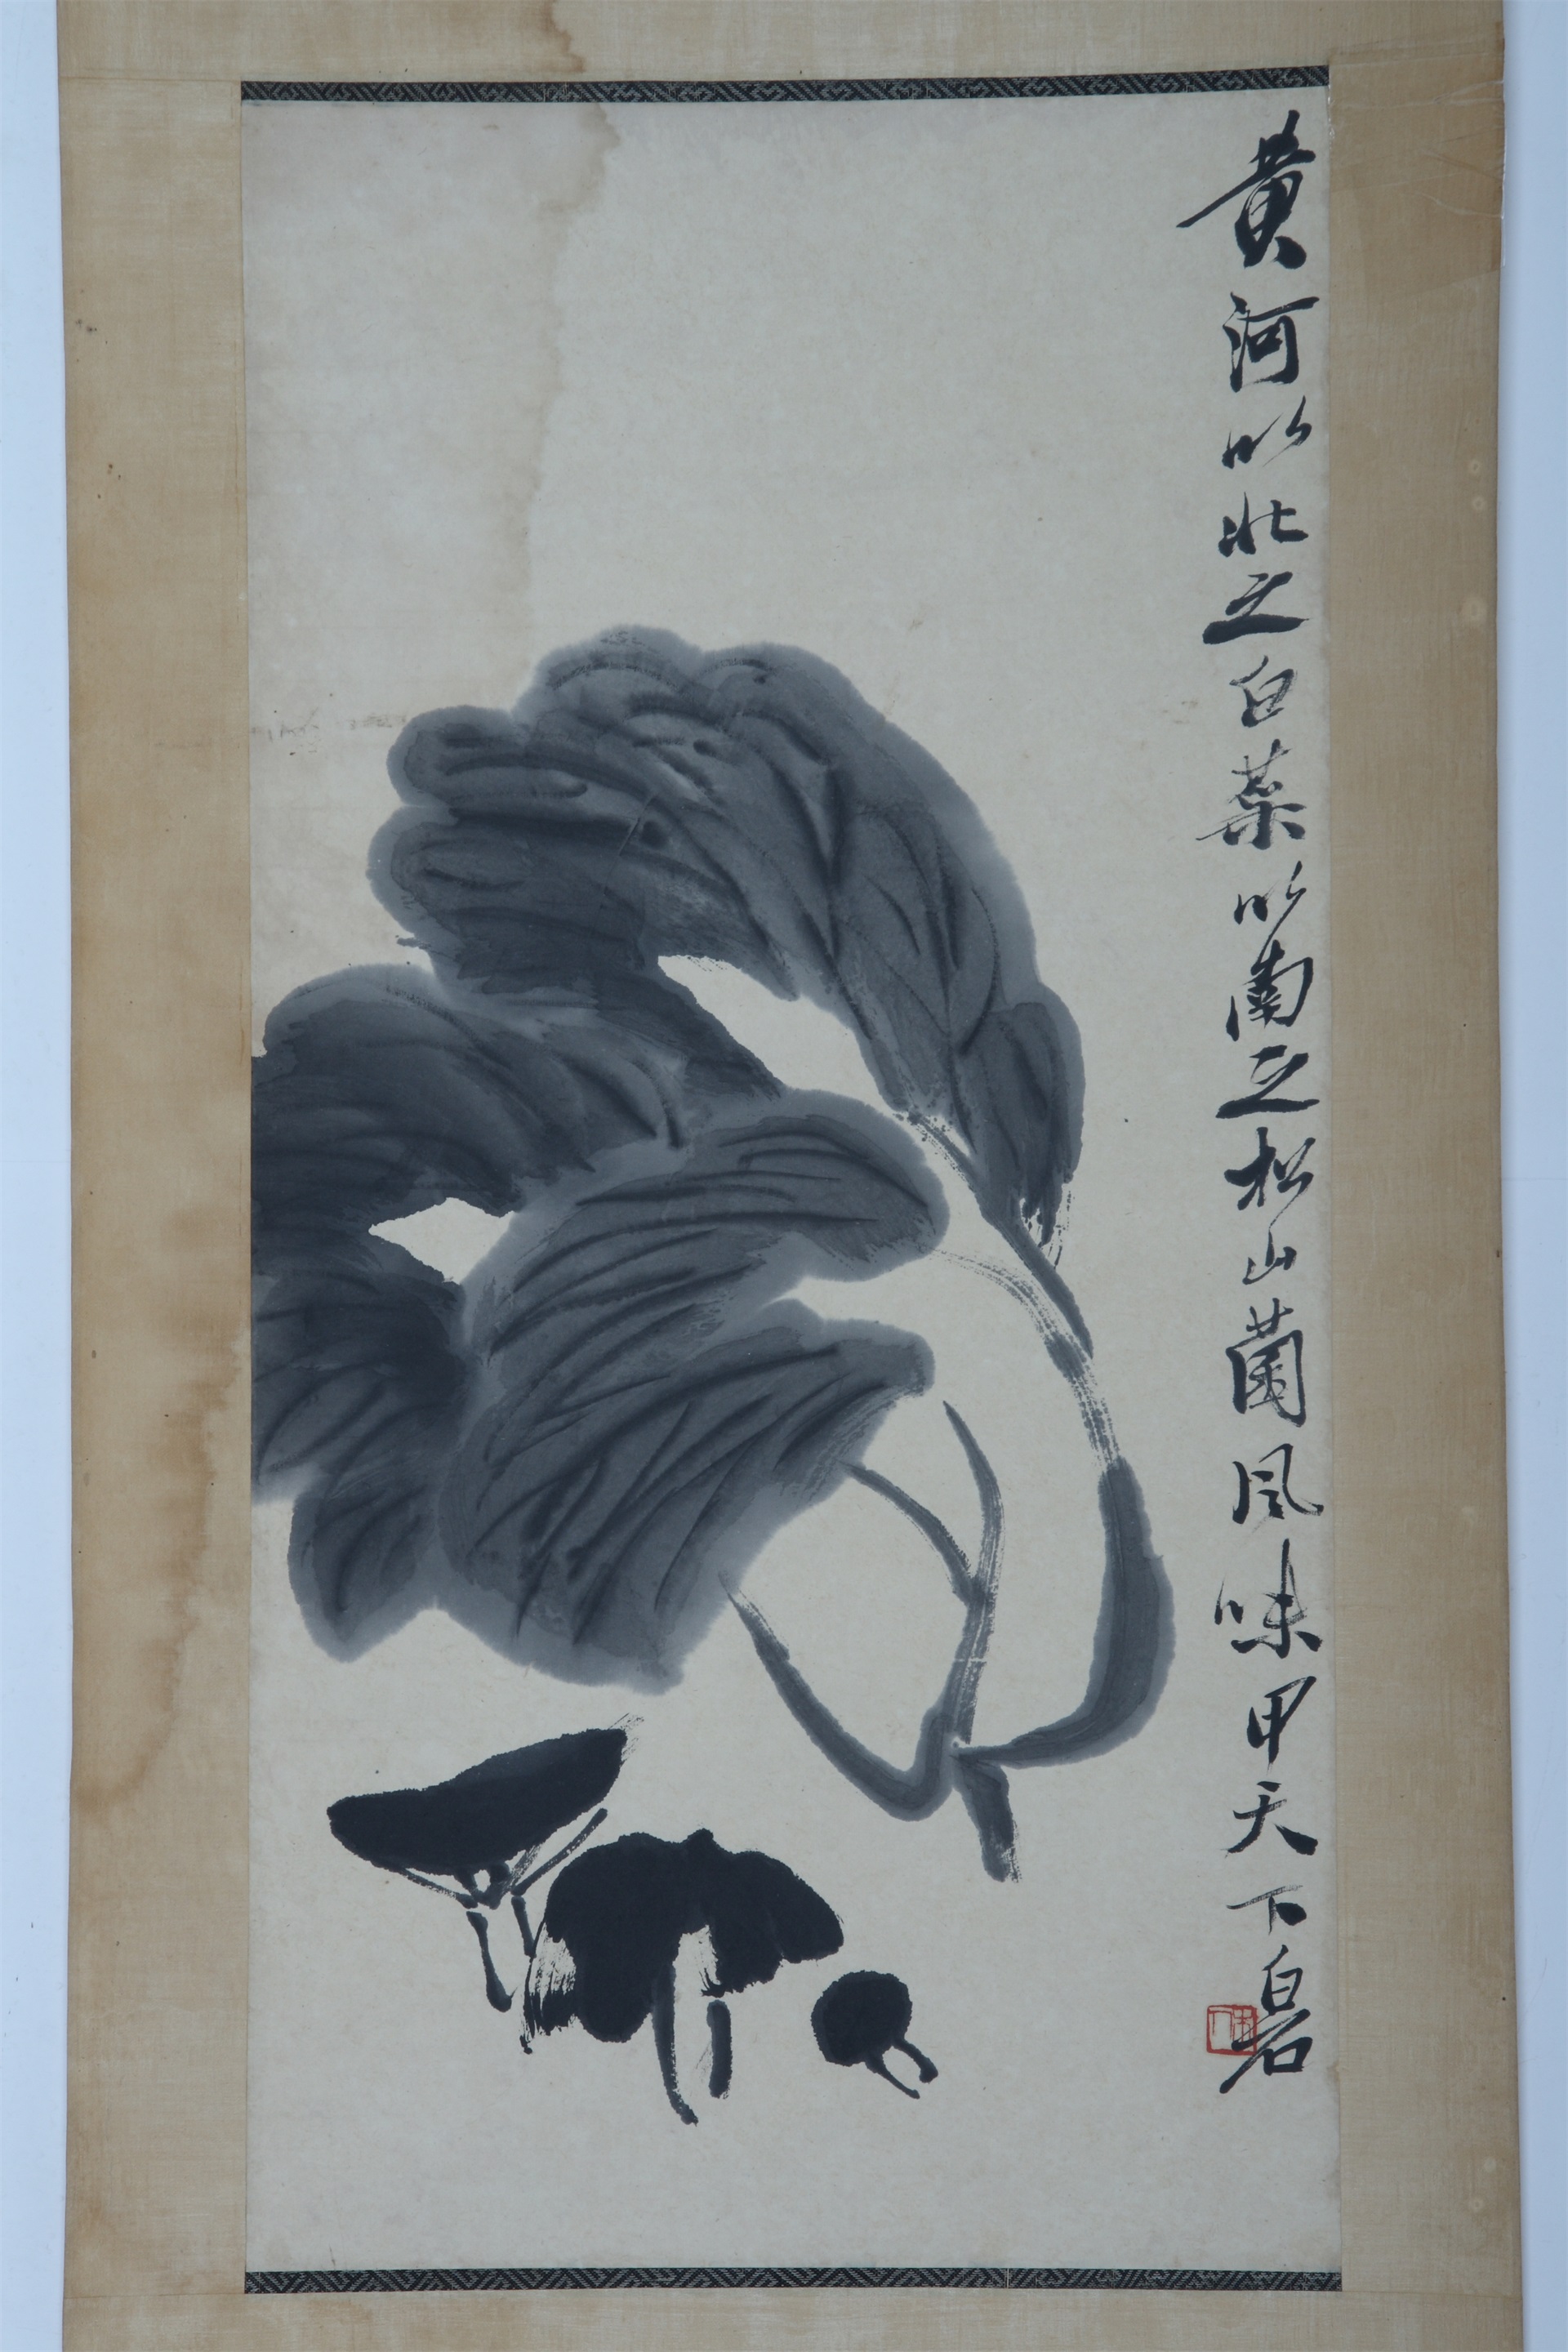 黄河以北之白菜以南之松山菌风味甲天下白石